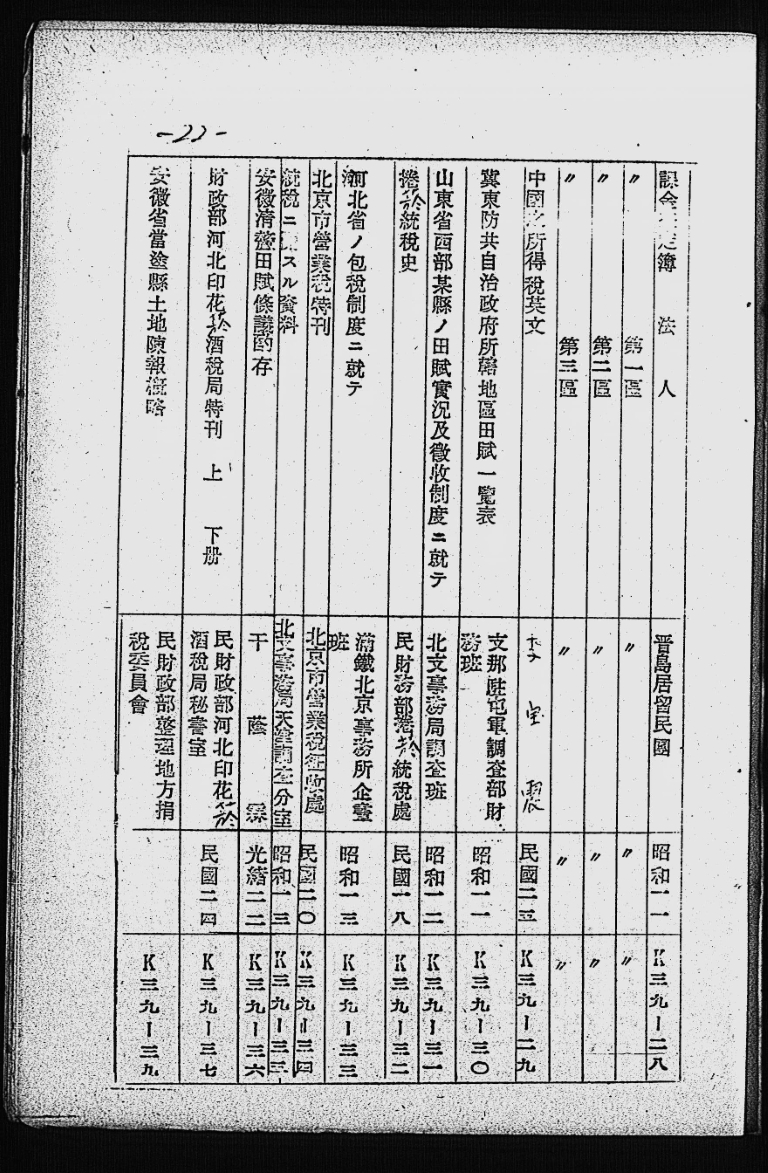 -22-
課金 簿 法人 晋島居留民國 昭和一一 K三九ー二八
〃 第一區 〃 〃 〃
〃 第二區 〃 〃 〃
〃 第三區 〃 〃 〃
中國之所得稅英文 李宝 民國二三 K三九ー二九
冀東防共自治政府所轄地區田賦一覽表 支那駐屯軍調查部財務班 昭和一一 K三九ー三〇
山東省西部某縣ノ田賦實況及徵收制度ニ就テ 北支事務局調查班 昭和一二 K三九ー三一
捲菸統稅史 民財務部捲菸統稅處 民國一八 K三九ー三二
河北省ノ包稅制度ニ就テ 滿鐵北京事務所企畫班 昭和一三 K三九ー三三
北京市營業稅特刊 北京市營業稅征收處 民國二〇 K三九ー三四
統稅ニ スル資料 北支事務局天津調查分室 昭和一三 K三九ー三三
安徽清 田賦條議 存 干蔭霖 光緒二二 K三九ー三六
財政部河北印花菸酒稅局特刊 上 下册 民財政部河北印花菸酒稅局秘書室 民國二四 K三九ー三七
安徽省當塗縣土地陳報概略 民財政部整理地方捐稅委員會 K三九ー三九